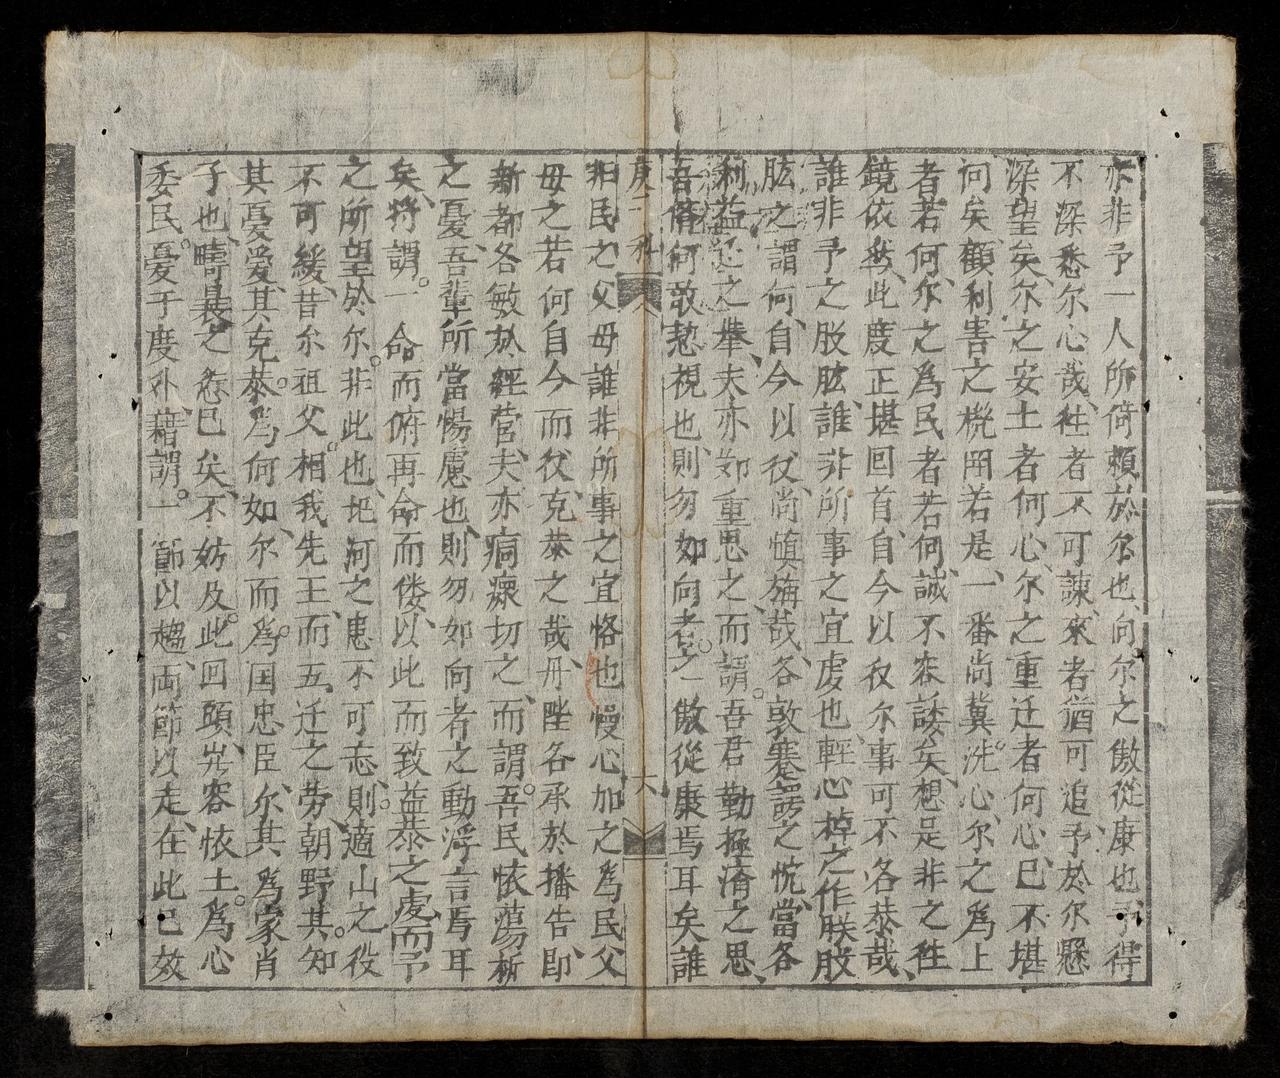 亦非予一人所倚頼於尔也向尔之傲從康也予得
不深悉尔心哉徃者不可諫來者猶可追予於尔懸
深望矣尔之安土者何心尔之重迁者何心巳不堪
问矣顧利害之榥罔若是一番尚兾洗心尔之爲上
者若何尔之爲民者若何誠不容諉矣想是非之徃
鏡依然此度正堪回首自今以㱔尔事可不各恭哉
誰非予之股肱誰非所事之宜虔也輕心棹之作朕股
肱之謂何自今以㱔尚慎旃哉各敦蹇諤之忱當各
利益之之舉夫亦郊重思之而謂吾君勤極淪之思
吾儕何敢恝視也則勿如向者之傲從康焉耳矣誰
庚子科 六
非民之父毋誰非所事之宜恪也慢心加之爲民父
毋之若何自今而㱔克恭之哉丹陛各承於播告即
新都各敏於經营夫亦痌瘝切之而謂吾民依蕩析
之憂吾輩所當惕慮也則勿如向者之動浮言焉耳
矣将謂一命而俯再命而偻以此而致益恭之處而予
之所望於尔非此也圯河之患不可忘則適山之役
不可緩昔尔祖父相我先王而五迁之劳朝野其知
其憂爱其克恭爲何如尔而爲囯忠臣尔其爲家肖
子也疇曩之愆巳矣不妨及此回頭㒵容依土爲心
委民憂于度外藉謂一節以趨両節以走在此巳效